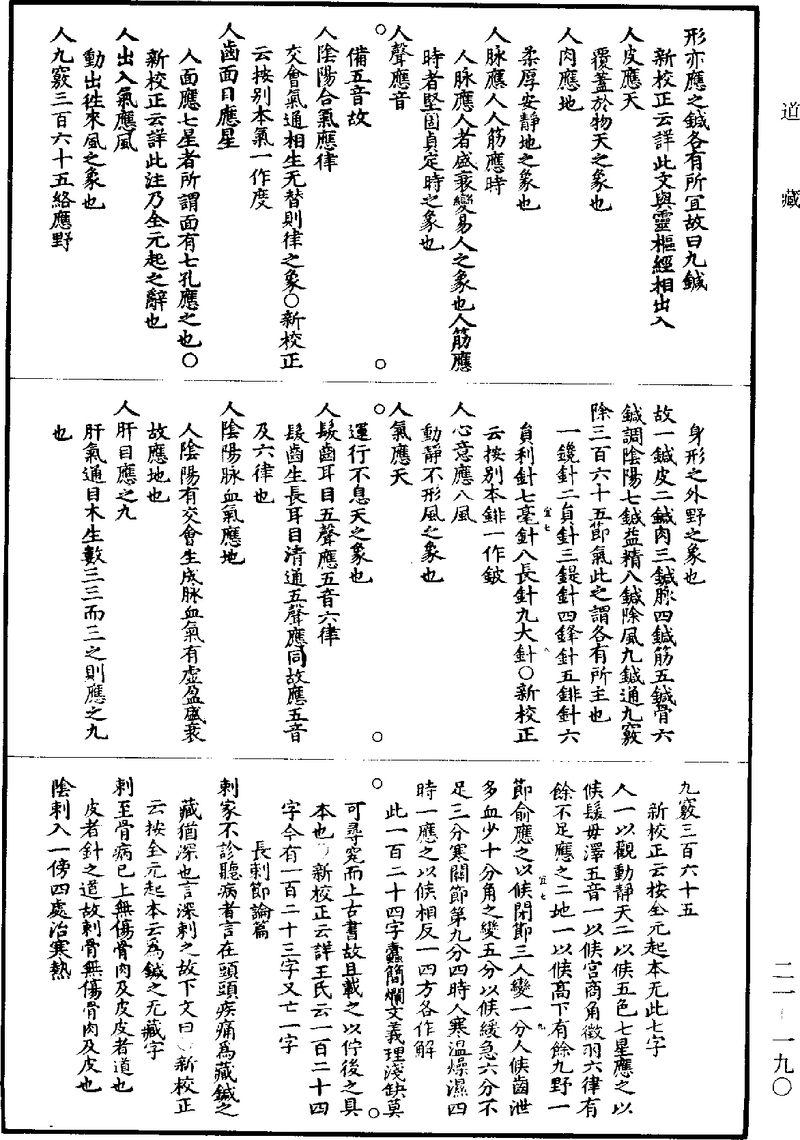 道藏
形亦應之鍼各有所宜故曰九鍼
新校正云詳此文與靈樞經相出入
人皮應天
覆蓋於物天之象也
人肉應地
柔厚安靜地之象也
人脉應人人筋應時
人脉應人者盛衰變易人之象也人筋應
時者堅固貞定時之象也
人聲應音
備五音故
人陰陽合氣應律
交會氣通相生无替則律之象〇新校正
云按别本氣一作度
人齒面目應星
人面應七星者所謂面有七孔應之也〇
新校正云詳此注乃全元起之辭也
人出入氣應風
動出徃來風之象也
人九竅三百六十五絡應野
身形之外野之象也
故一鍼皮二鍼肉三鍼脉四鍼筋五鍼骨六
鍼調陰陽七鍼益精八鍼除風九鍼通九竅
除三百六十五節氣此之謂各有所主也
一鑱針二員針三鍉針四鋒針五鈹針六
員利針七毫針八長針九大針〇新校正
云按别本鈹一作鈹
人心意應八風
動靜不形風之象也
人氣應天
運行不息天之象也
人髮齒耳目五聲應五音六律
髮齒生長耳目清通五聲應同故應五音
及六律也
人陰陽脉血氣應地
人陰陽有交會生成脉血氣有虚盈盛衰
故應地也
人肝目應之九
肝氣通目木生數三三而三之則應之九
也
九竅三百六十五
新校正云按全元起本无此七字
人一以觀動靜天二以候五色七星應之以
候髮毋澤五音一以候宫商角徵羽六律有
餘不足應之二地一以候高下有餘九野一
節俞應之以候閉節三人變一分人候齒泄
多血少十分角之變五分以候緩急六分不
足三分寒關節第九分四時人寒温燥濕四
時一應之以候相反一四方各作解
此一百二十四字蠹簡爛文義理淺缺莫
可尋究而上古書故且載之以佇後之具
本也〇新校正云詳王氏云一百二十四
字今有一百二十三字又亡一字
長刺節論篇
刺家不診聽病者言在頭頭疾痛爲藏鍼之
藏猶深也言深刺之故下文曰〇新校正
云按全元起本云爲鍼之无藏字
刺至骨病已上無傷骨肉及皮皮者道也
皮者針之道故刺骨無傷骨肉及皮也
陰刺入一傍四處治寒熱
二一-一九〇